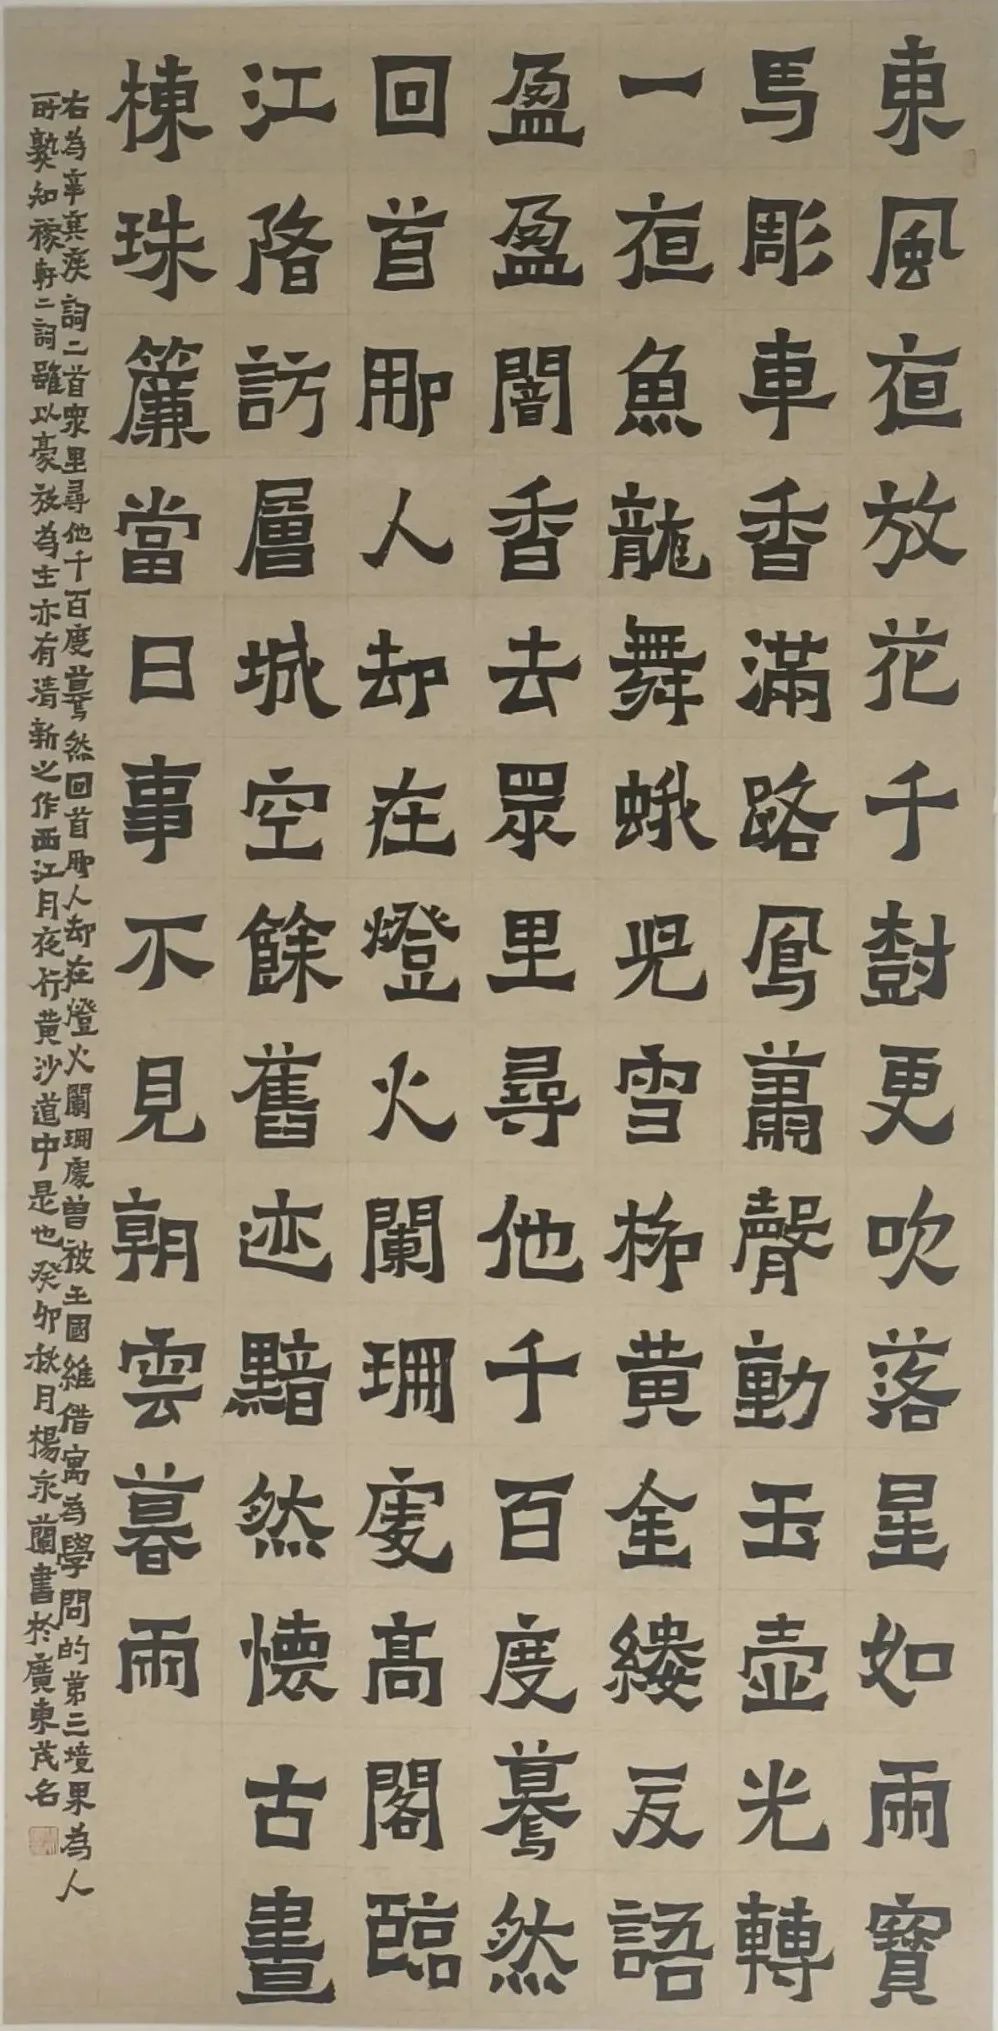 東風夜放花千樹更吹落星如雨寶
馬彫車香滿路鳳蕭聲動玉壺光轉
一夜魚龍舞蛾兒雪柳黃金縷笑語
盈盈闇香去眾里尋他千百度驀然
回首那人却在燈火闌珊處高閣臨
江階訪層城空餘舊迹黯然懷古畫
棟珠簾當日事不見朝雲暮雨
右為辛棄疾詞二首眾里尋他千百度驀然回首那人却在燈火闌珊處曾被王國維借寓為學問的第三境界為人
所熟知稼軒二詞雖以豪放為主亦有清新之作西江月夜行黄沙道中是也癸卯秋月楊永蘭書於廣東茂名